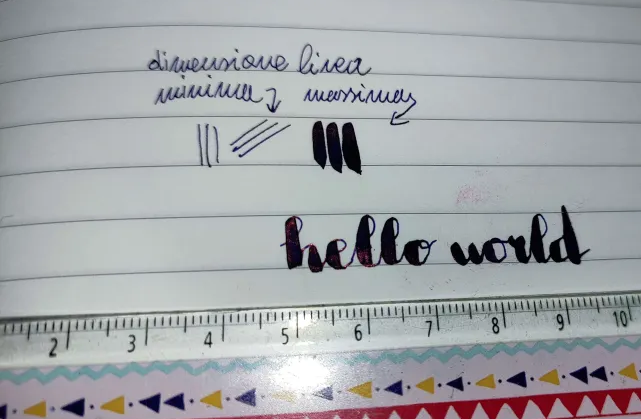 dimensione linea
minima massima
hello world
2 3 4 5 6 7 8 9 10